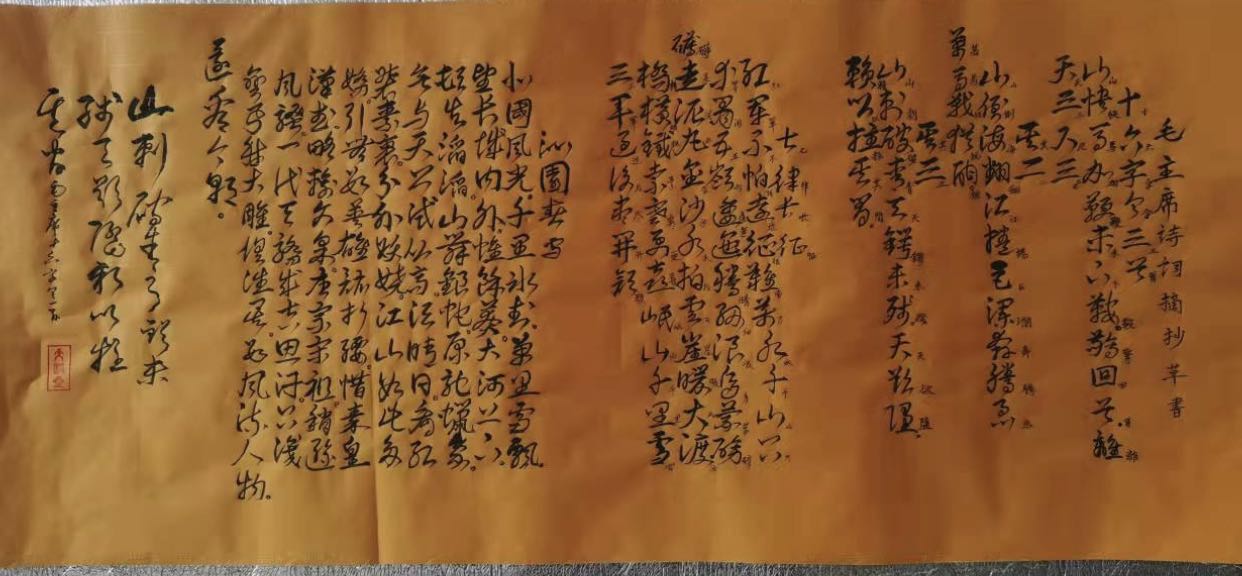 毛主席诗词摘抄草书
十六字令三首
山快马加鞭未下鞍惊回首离
天三尺三
其二
山倒海翻江捲巨澜奔腾急
萬马战犹酣
其三
山刺破青天锷未残天欲堕
赖以拄其间
七律长征
红军不怕远征难萬水千山只
等闲五岭逶迤腾细浪乌蒙磅
礴走泥丸金沙水拍雲崖暖大渡
桥横铁索寒更喜岷山千里雪
三军过後尽开颜
沁園春雪
北國风光,千里冰封,萬里雪飘。
望长城内外,惟馀莽莽大河上下,
顿失滔滔。山舞银蛇原驰蜡象,
欲与天公试比高。须晴日,看红
装素裹,分外妖娆。江山如此多
娇,引无数英雄竞折腰。惜秦皇
汉武略输文采。唐宗宋祖稍逊
风骚。一代天骄成吉思汗。只识
弯弓射大雕。俱往矣。数风流人物。
还看今朝。
山刺破青天锷未
残天欲堕赖以拄
其间毛主席十六字令